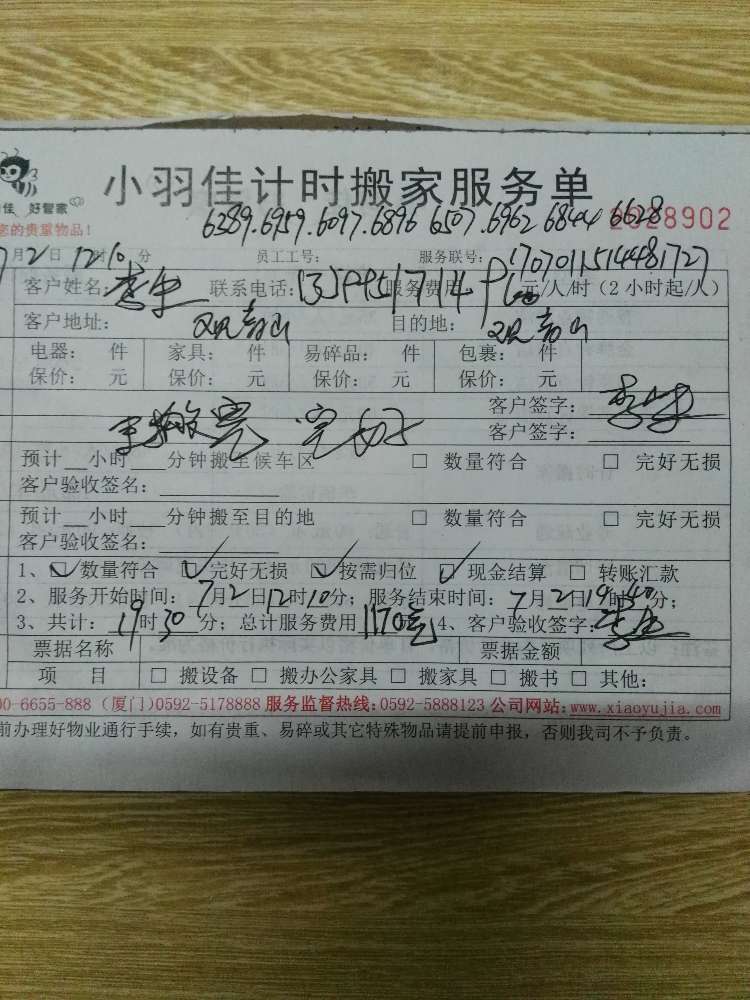 小羽佳计时搬家服务单
佳 好管家
您的贵重物品!
6389.6959.6097.6896 6507.6962 6844 6628
2028902
7月2日12时10分 员工工号: 服务联号: 1707011514481727
客户姓名: 联系电话: 服务费用: 元/人/时(2小时起/人)
客户地址: 目的地:
电器: 件 家具: 件 易碎品: 件 包裹: 件
保价: 元 保价: 元 保价: 元 保价: 元
客户签字:
完好
客户签字:
预计__小时___分钟搬至候车区 □ 数量符合 □ 完好无损
客户验收签名:
预计__小时___分钟搬至目的地 □ 数量符合 □ 完好无损
客户验收签名:
1、☑数量符合 ☑完好无损 ☑按需归位 ☑现金结算 □ 转账汇款
2、服务开始时间: 7月2日12时10分; 服务结束时间: 7月2日19时40分;
3、共计: 时30分; 总计服务费用1170元 4、客户验收签字:
票据名称 票据金额
项 目 □ 搬设备 □ 搬办公家具 □ 搬家具 □ 搬书 □ 其他:
00-6655-888 (厦门)0592-5178888 服务监督热线:0592-5888123 公司网站:www.xiaoyujia.com
前办理好物业通行手续，如有贵重、易碎或其它特殊物品请提前申报，否则我司不予负责。